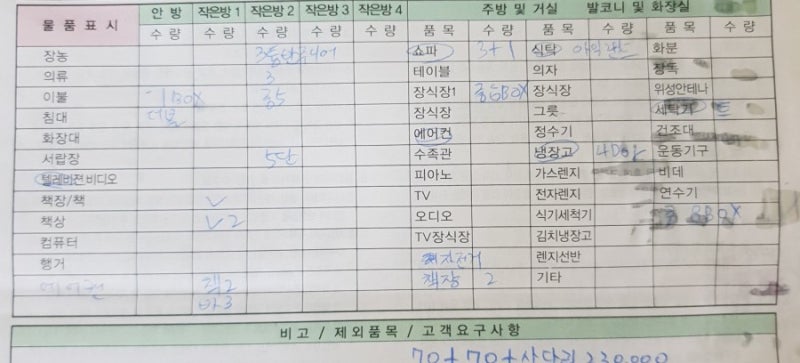 물품표시 안방 작은방 1 작은방 2 작은방 3 작은방 4 주방 및 거실 발코니 및 화장실
수량 수량 수량 수량 수량 품목 수량 품목 수량 품목 수량
장농 쇼파 3+1 식탁 화분
의류 3 테이블 의자 장독
이불 1 BOX 중5 장식장1 중5BOX 장식장 위성안테나
침대 더블 장식장 그릇 세탁기
화장대 에어컨 정수기 건조대
서랍장 5단 수족관 냉장고 400l 운동기구
텔레비젼비디오 피아노 가스렌지 비데
책장/책 TV 전자렌지 연수기
책상 2 오디오 식기세척기 8BOX
컴퓨터 TV장식장 김치냉장고
행거 렌지선반
에어컨 책2 책장 2 기타
바3
비고 / 제외품목 / 고객요구사항
70+70+사다리 230,000